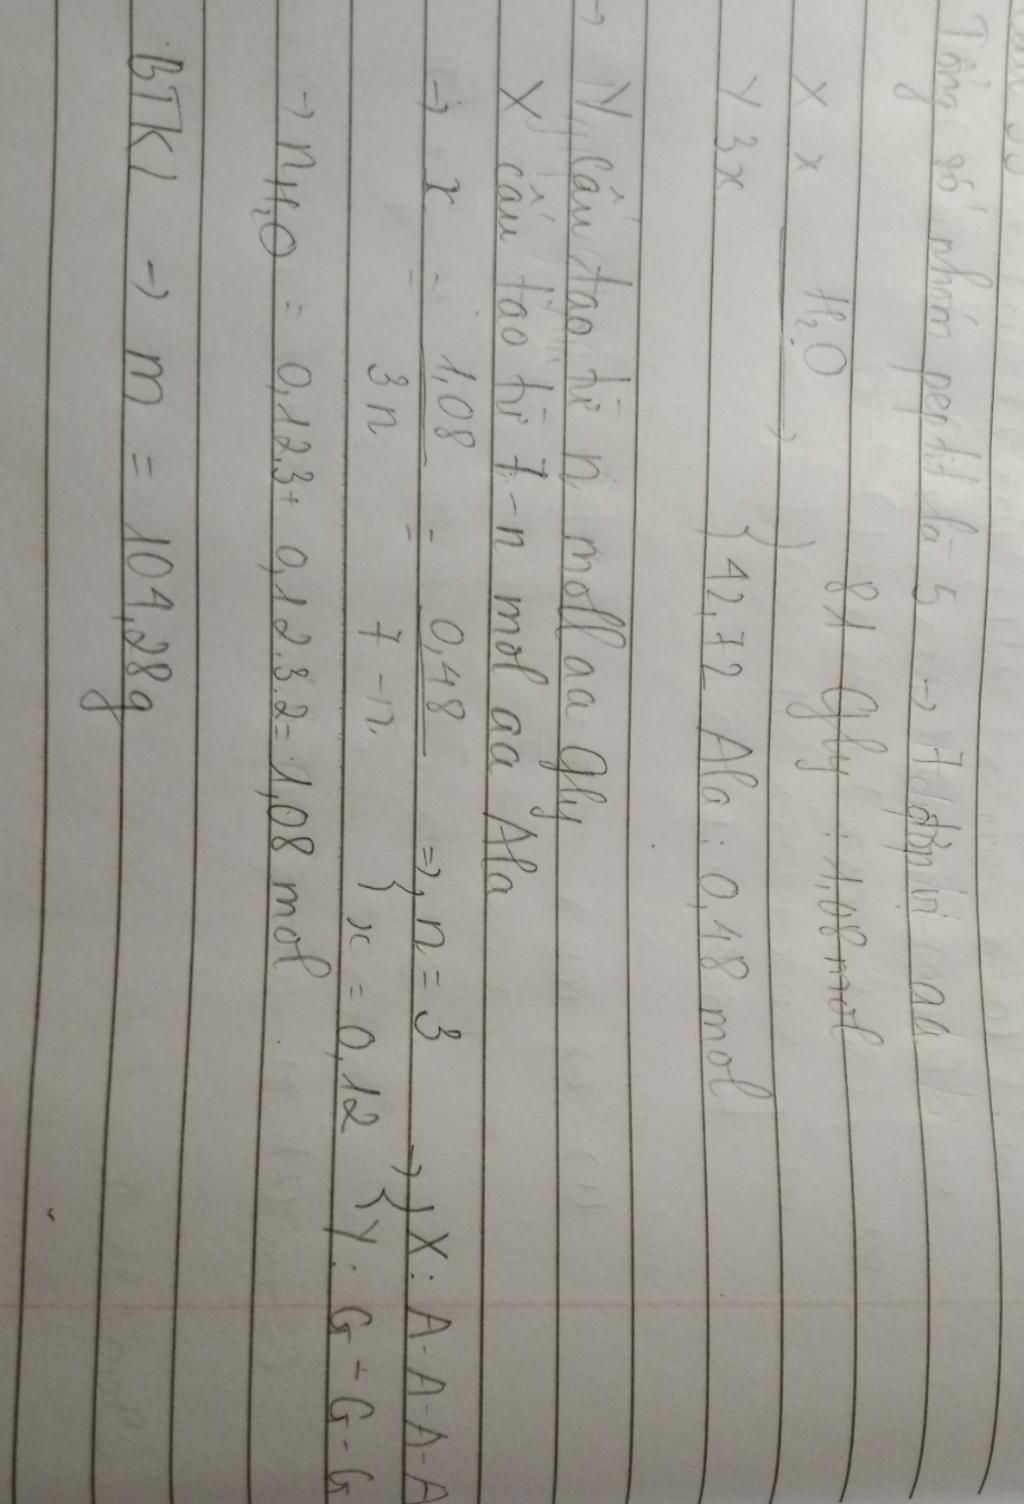 Tổng số nhóm peptit là 5 → 7 đơn vị aa
X x H₂O 81 Gly : 1,08 mol
Y 3x ⟶ } 42,72 Ala : 0,48 mol
→ Y cấu tạo từ n mol aa Gly
X cấu tạo từ 7-n mol aa Ala
→ x = 1,08 / 3n = 0,48 / 7-n => n = 3 } x = 0,12 → { X: A-A-A-A
Y: G-G-G
→ nH₂O = 0,12.3+ 0,12.3.2= 1,08 mol
BTKl → m = 104,28g